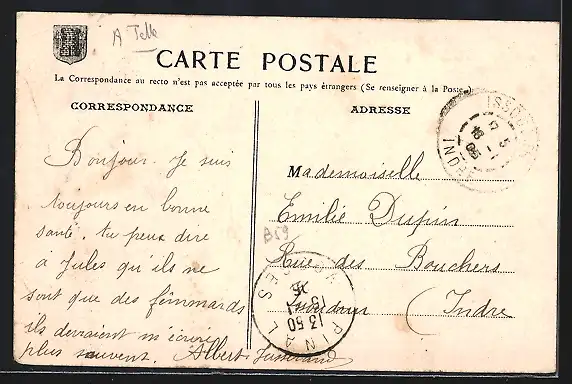 A Telle
CARTE POSTALE
La Correspondance au recto n'est pas acceptée par tous les pays étrangers (Se renseigner à la Poste.)
CORRESPONDANCE
ADRESSE
Bonjour. Je suis
toujours en bonne
santé. tu peux dire
a Jules qu'ils ne
sont que des
ils devraient m'écrire
plus souvent. Albert
Mademoiselle
Emilie Dupin
Rue des Bouchers
(Indre
B59
ISSOUDUN
INDRE
EPINAL
13 50